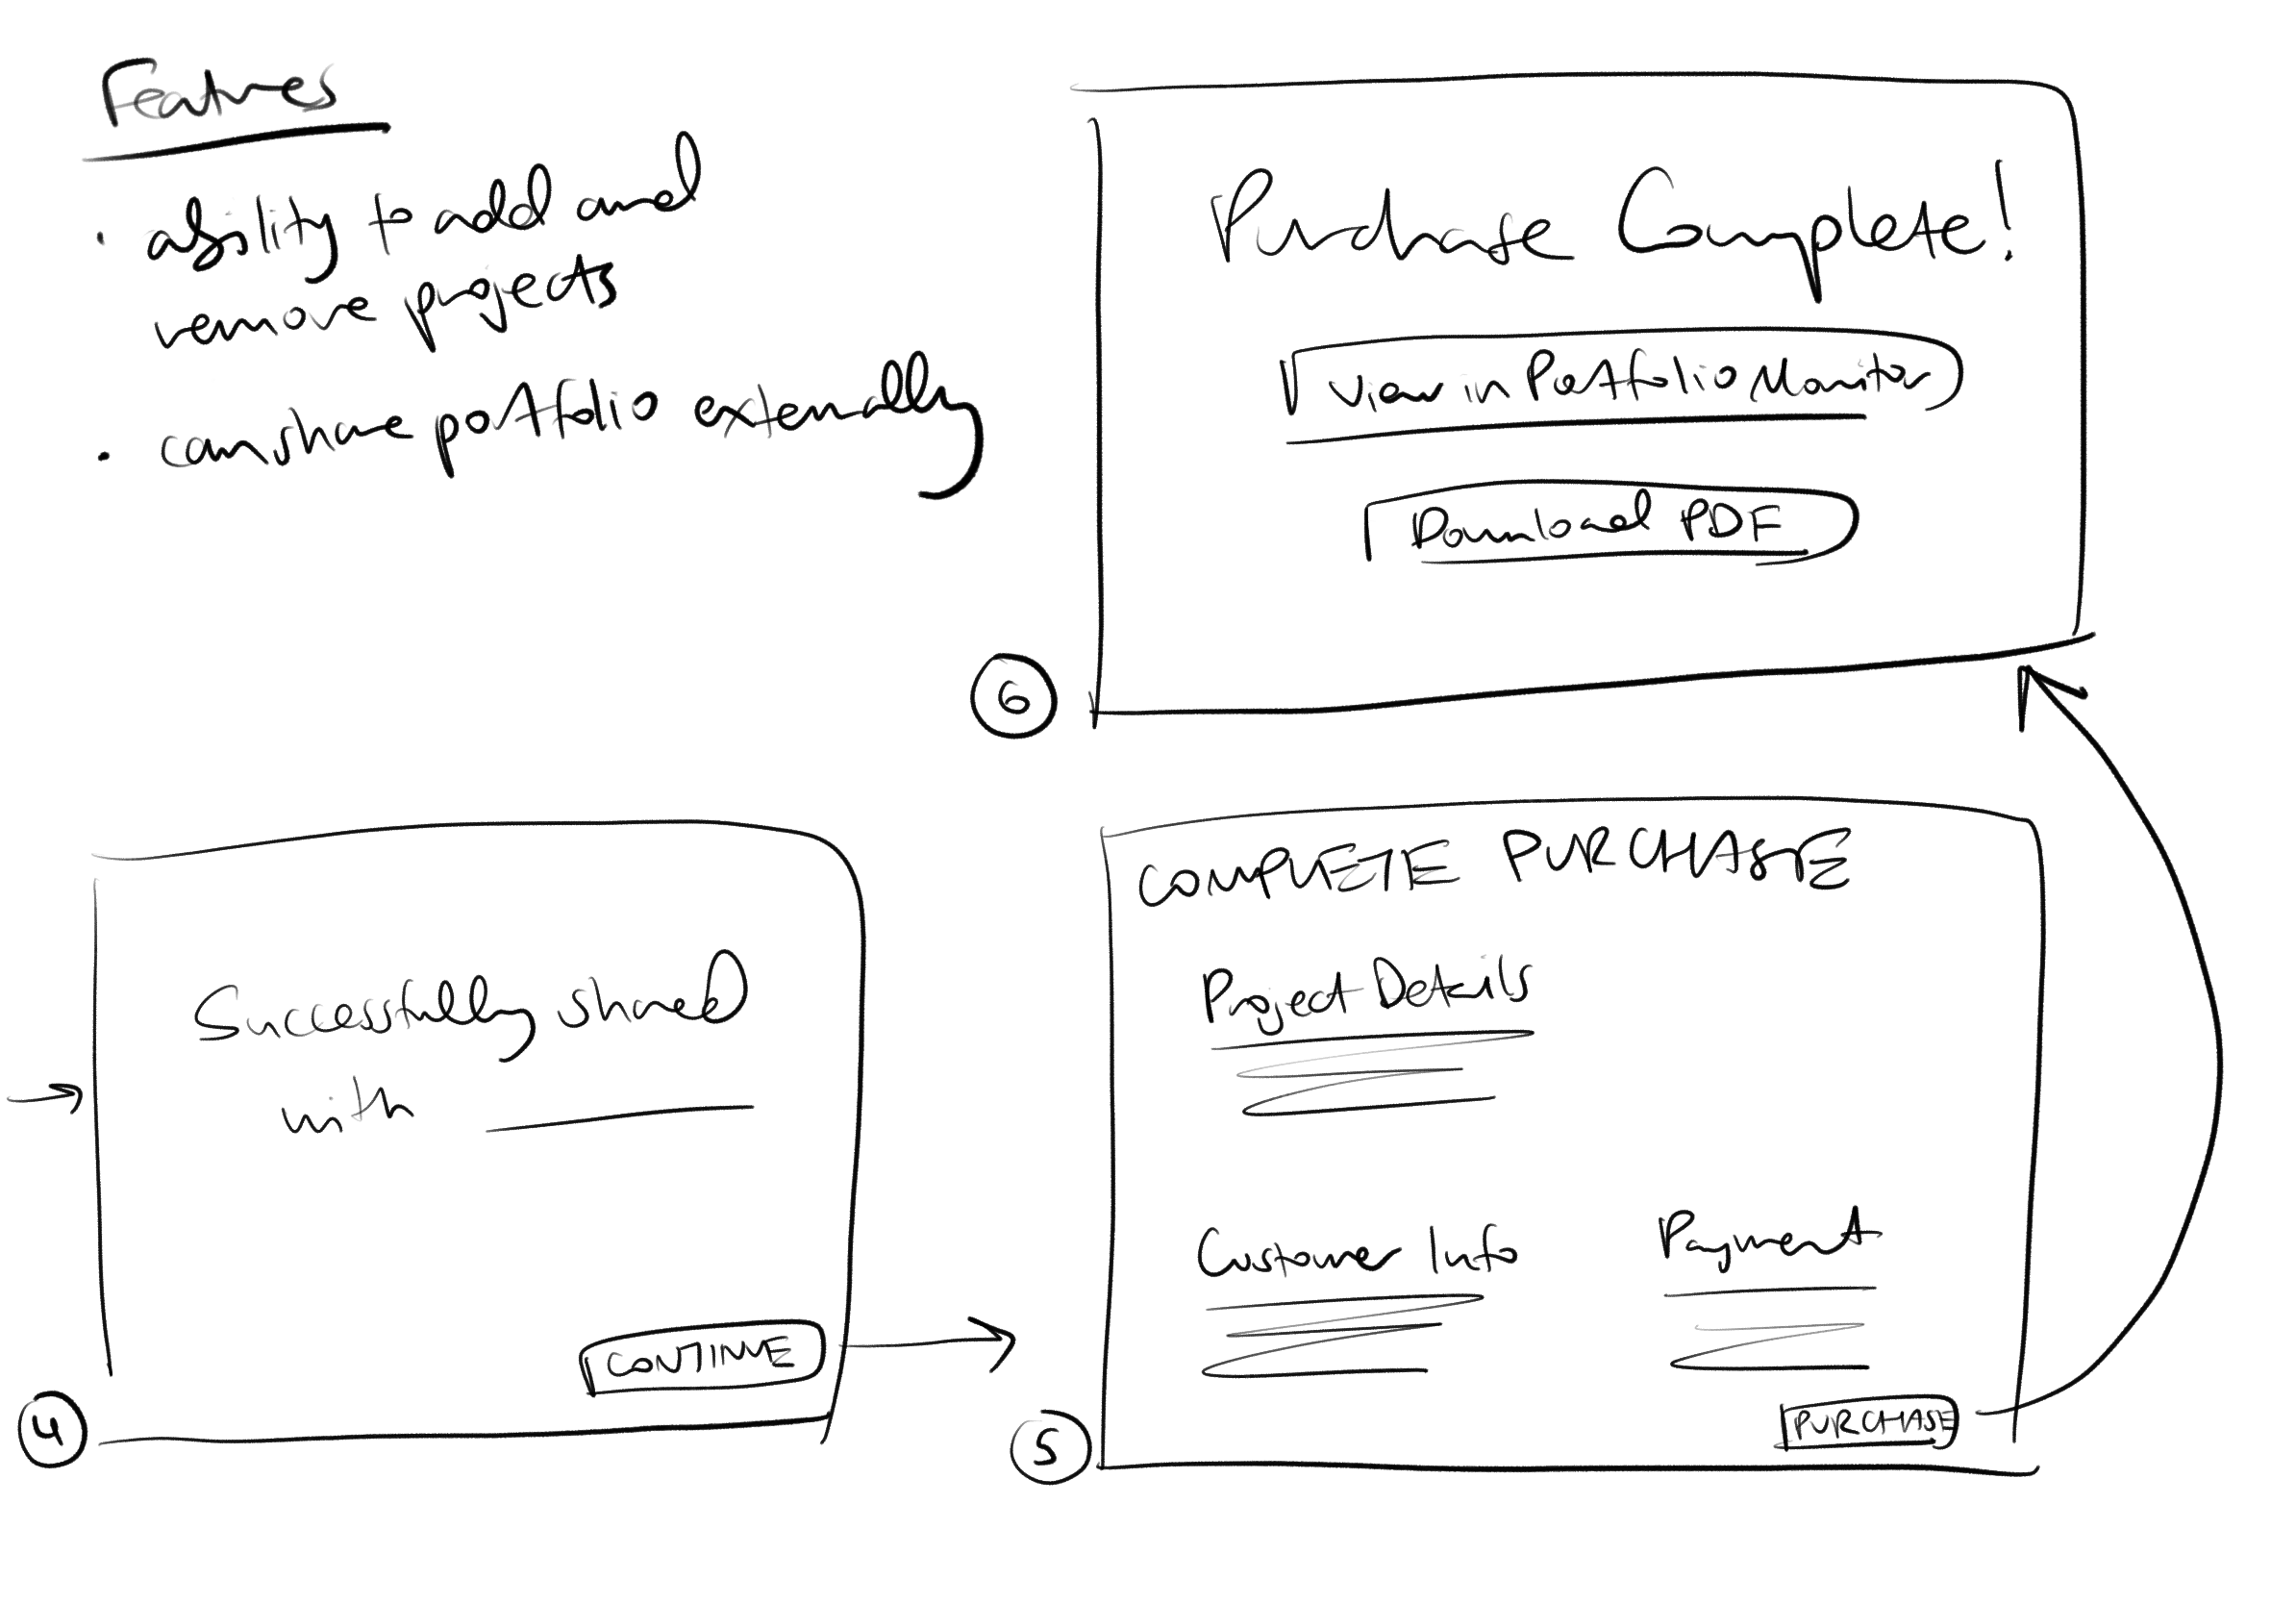 Features
· ability to add and
remove projects
· can share portfolio externally
Purchase Complete!
View in Portfolio Monitor
Download PDF
6
Successfully shared
with
CONTINUE
4
COMPLETE PURCHASE
Project Details
Customer Info
Payment
PURCHASE
5